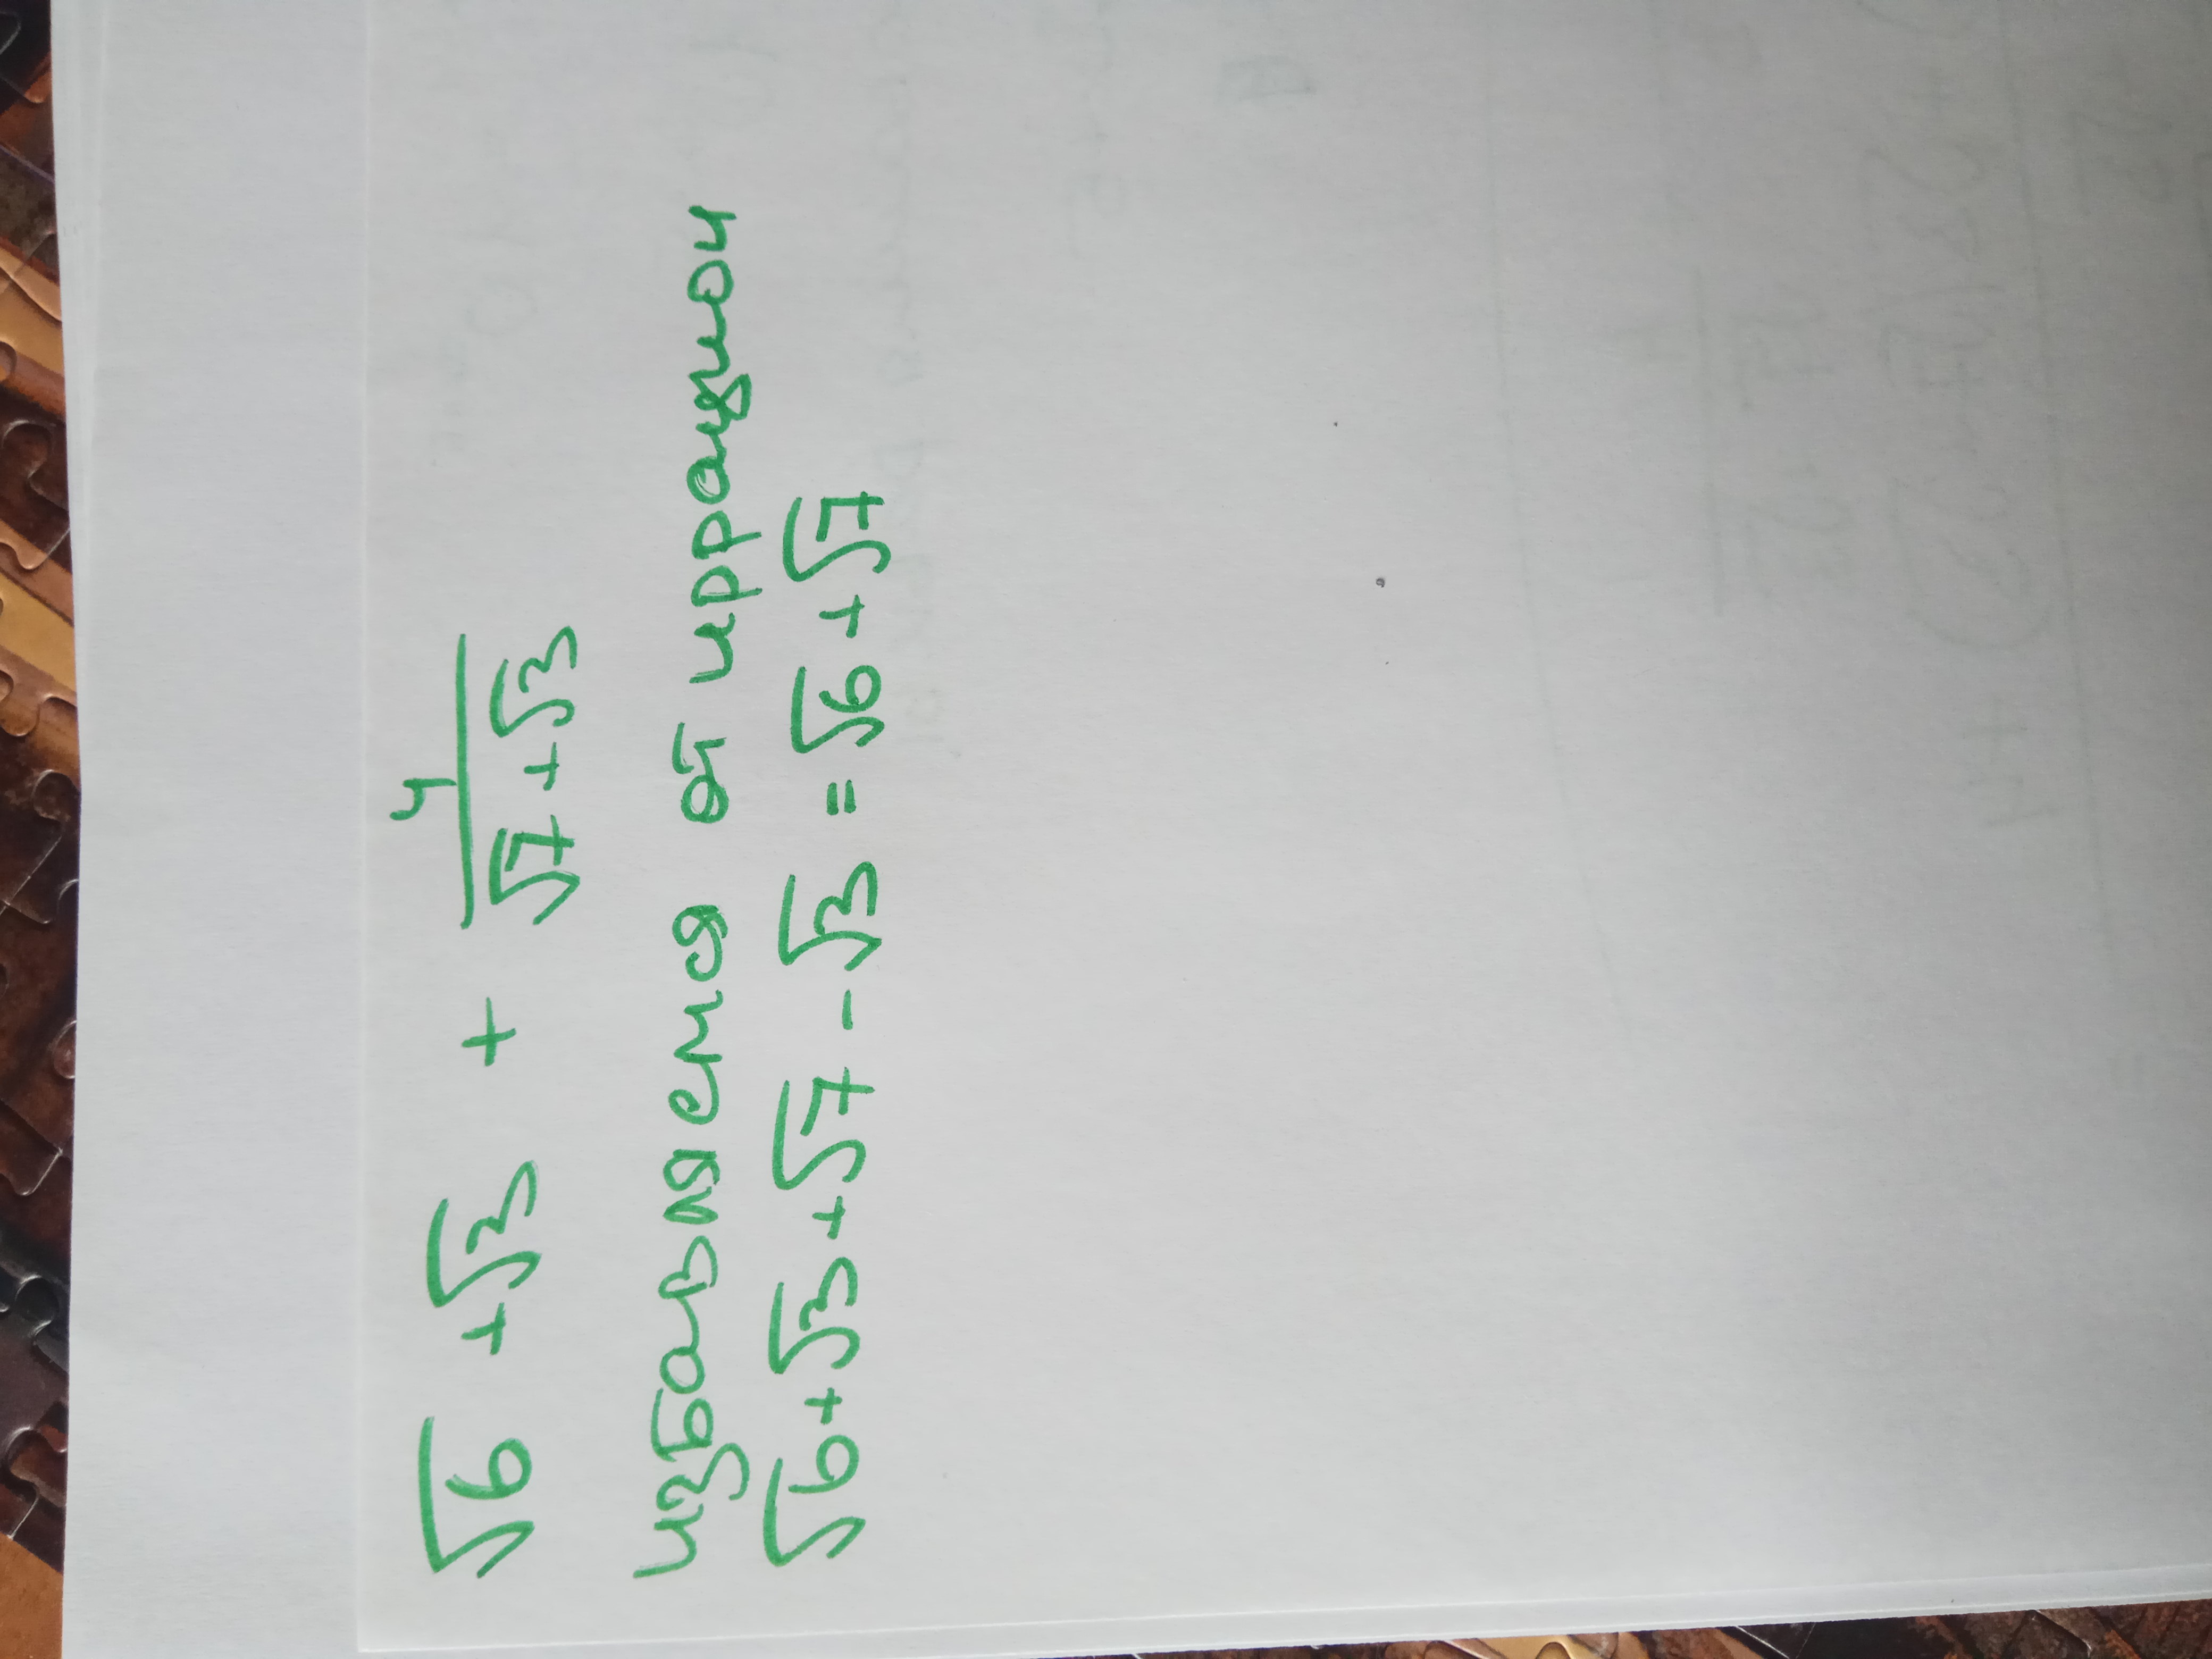 √6 + √3 + 4/(√7 + √3)
избавляемся от иррацион
√6 + √3 + √7 - √3 = √6 + √7